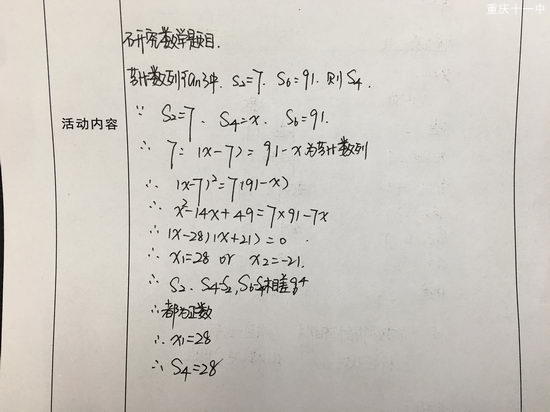 重庆十一中
研究数学题目.
等比数列{an}中, S₂=7, S₆=91. 则S₄.
活动内容
∵ S₂=7, S₄=x, S₆=91.
∴ 7, (x-7), 91-x为等比数列
∴ (x-7)²=7(91-x)
∴ x²-14x+49=7×91-7x
∴ (x-28)(x+21)=0
∴ x₁=28 or x₂=-21.
∴ S₂, S₄-S₂, S₆-S₄相差q⁴
∴都为正数
∴ x₁=28
∴ S₄=28